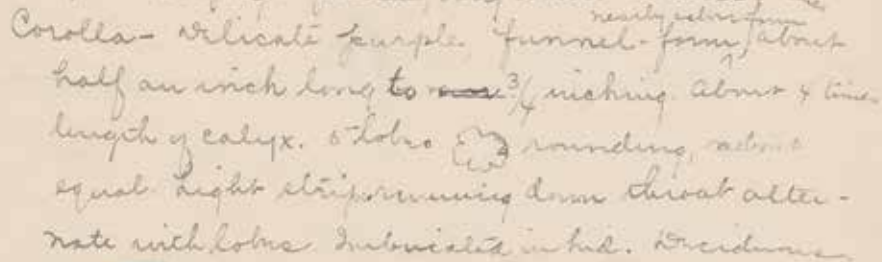 nearly
Corolla - Delicate purple, funnel-form, about
half an inch long to 3/4 inching. About 4 times
length of calyx. 5 lobes rounding, about
equal. Light strip running down throat alter-
nate with lobes. Imbricated in bud. Deciduous